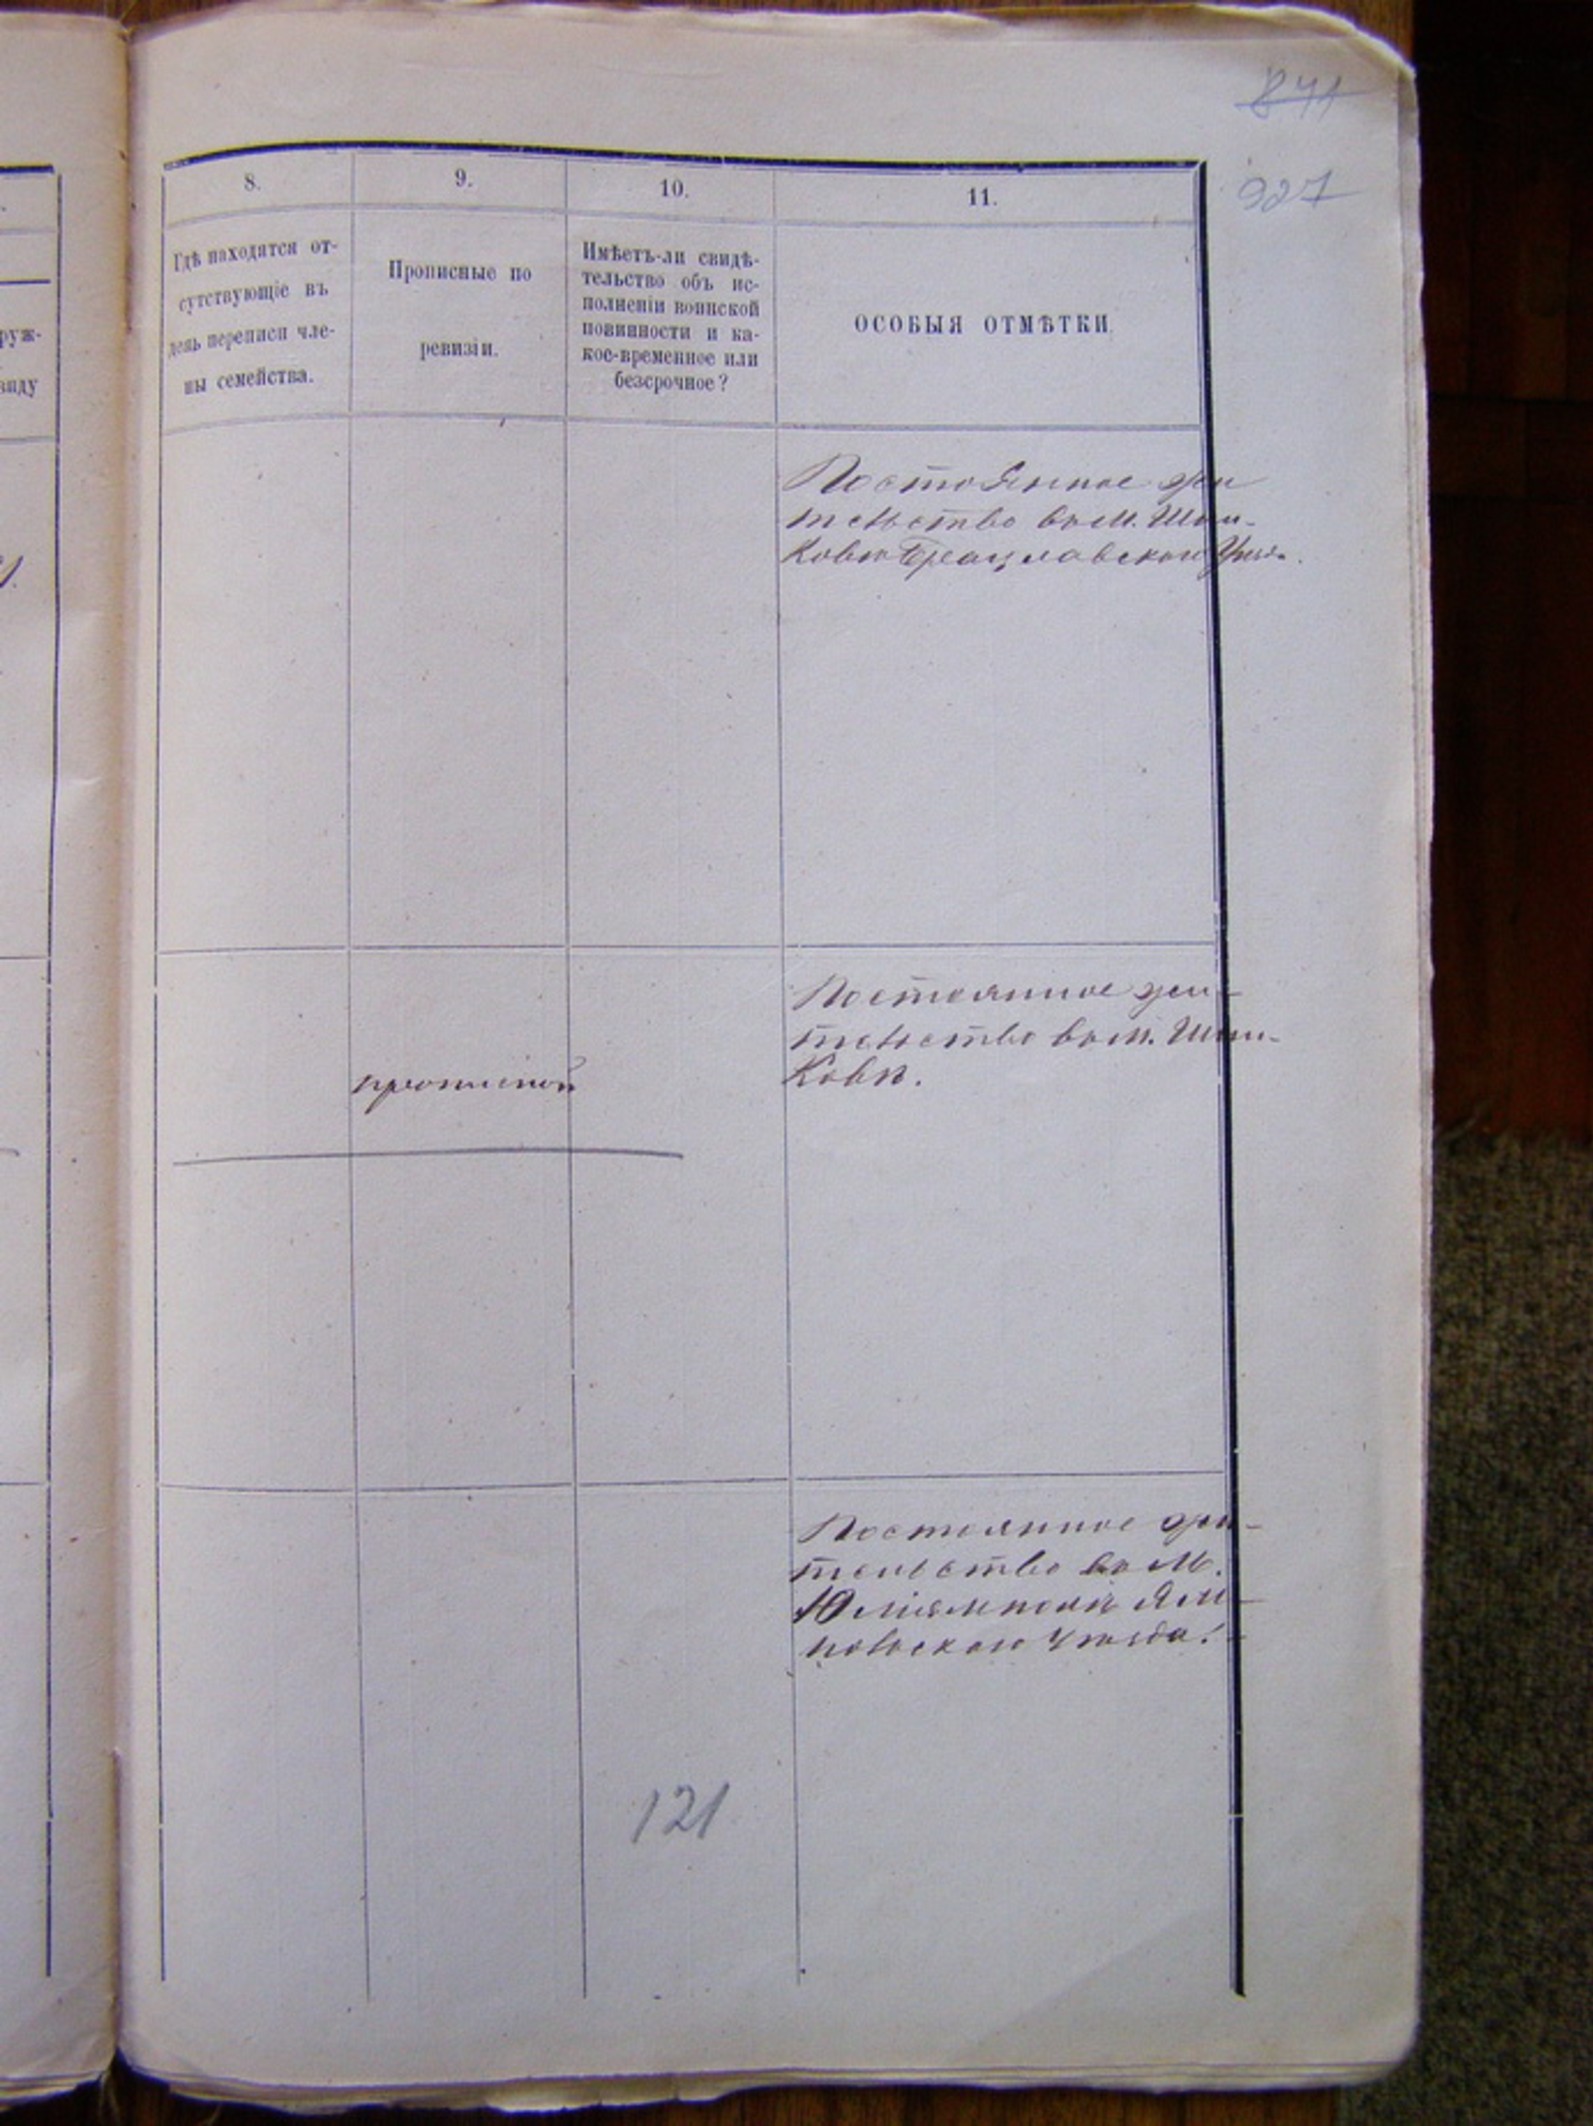 841
927
8.
9.
10.
11.
Гдѣ находятся от-
сутствующіе въ
день переписи чле-
ны семейства.
Прописные по
ревизіи.
Имѣетъ-ли свидѣ-
тельство объ ис-
полненіи воинской
повинности и ка-
кое-временное или
безсрочное?
ОСОБЫЯ ОТМѢТКИ.
руж-
виду
Постоянное жи
тельство въ м. Шпи-
ковѣ Брацлавскаго Уѣзда.
прописной
Постоянное жи-
тельство въ м. Шпи-
ковѣ.
Постоянное жи-
тельство въ м.
Ям-
польскаго уѣзда.
121